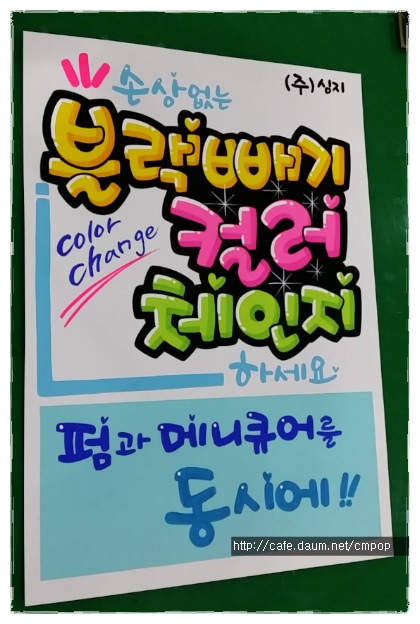 (주)심지
손상없는
블랙빼기
컬러
color
change
체인지
하세요
펌과 메니큐어를
동시에!!
http://cafe.daum.net/cmpop